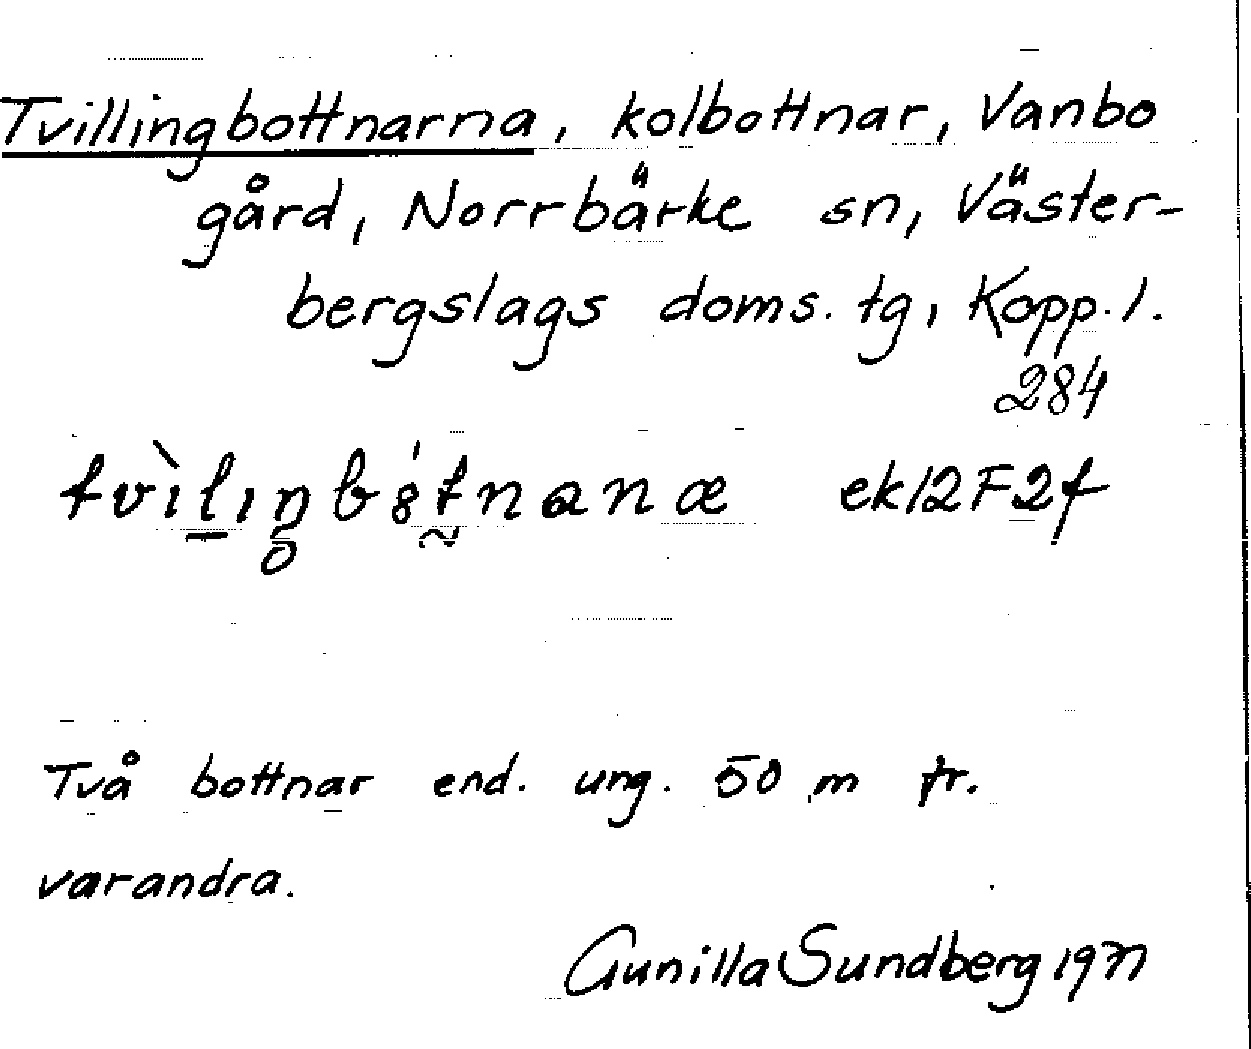 Tvillingbottnarna, kolbottnar, Vanbo
gård, Norrbärke sn, Väster-
bergslags doms. tg, Kopp. l.
284
ek12F2f
Två bottnar end. ung. 50 m fr.
varandra.
Gunilla Sundberg 1971